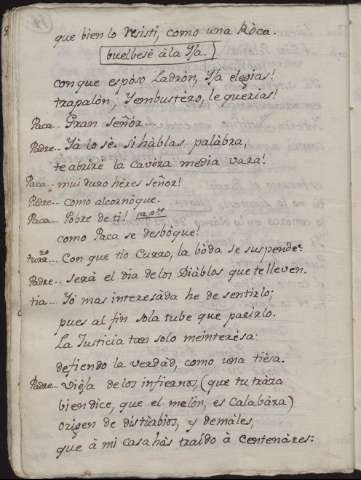 que bien lo resisti, como una Ròca.
buelbesè àla Yja.
con que espòso Ladròn, Yjá elegias!
trapalón, Yembustèro, le querias!
Paca.. Gran Señòr...
Padre.. Ya lo sè. si hàblas palàbra,
te abrirè la cavèza mèdia vara!
Paca.. mui duro hères señor!
Padre.. como alcornòque.
Paca... Pobre de ti!
como Paca se desbòque!
Con que tio Curro, la bòda se suspende.
Padre.. serà el dia de los Diàblos que te lleven.
tia... Yò mas interesàda he de sentirlo;
pues al fin sola tube que parirlo.
La Justicia tan solo me interèsa:
defiendo la verdàd, como una tièsa.
Padre.. Vièja de los infiernos, (que tu tràza
bien dice, que el melòn, es Calabàza)
origen de distùrbios, y demàles,
que à mi casa hàs traìdo à centenàres: